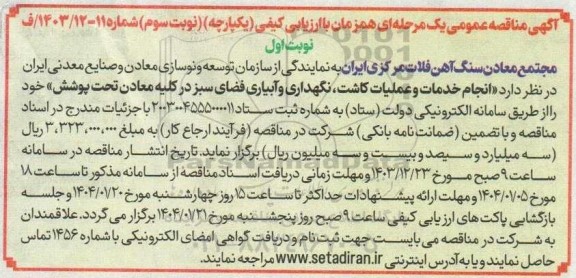 آگهی مناقصه عمومی یک مرحله‌ای همزمان با ارزیابی کیفی (یکپارچه) (نوبت سوم) شماره ۱۱-۱۴۰۳/۱۲/ف
نوبت اول
مجتمع معادن سنگ آهن فلات مرکزی ایران به نمایندگی از سازمان توسعه و نوسازی معادن و صنایع معدنی ایران
در نظر دارد «انجام خدمات و عملیات کاشت، نگهداری و آبیاری فضای سبز در کلیه معادن تحت پوشش» خود
را از طریق سامانه الکترونیکی دولت (ستاد) به شماره ثبت ستاد ۲۰۰۳۰۰۴۵۵۵۰۰۰۰۱۱ با جزئیات مندرج در اسناد
مناقصه و با تضمین (ضمانت‌نامه بانکی) شرکت در مناقصه (فرآیند ارجاع کار) به مبلغ ۳.۳۲۳.۰۰۰.۰۰۰ ریال
(سه میلیارد و سیصد و بیست و سه میلیون ریال) برگزار نماید. تاریخ انتشار مناقصه در سامانه
ساعت ۹ صبح مورخ ۱۴۰۳/۱۲/۲۳ و مهلت زمانی دریافت اسناد مناقصه از سامانه مذکور تا ساعت ۱۸
مورخ ۱۴۰۴/۰۱/۰۵ و مهلت ارائه پیشنهادات حداکثر تا ساعت ۱۵ روز چهارشنبه مورخ ۱۴۰۴/۰۱/۲۰ و جلسه
بازگشایی پاکت‌های ارزیابی کیفی ساعت ۹ صبح روز پنجشنبه مورخ ۱۴۰۴/۰۱/۲۱ برگزار می‌گردد. علاقمندان
به شرکت در مناقصه می‌بایست جهت ثبت نام و دریافت گواهی امضای الکترونیکی با شماره ۱۴۵۶ تماس
حاصل نمایند و یا به آدرس اینترنتی www.setadiran.ir مراجعه نمایند.